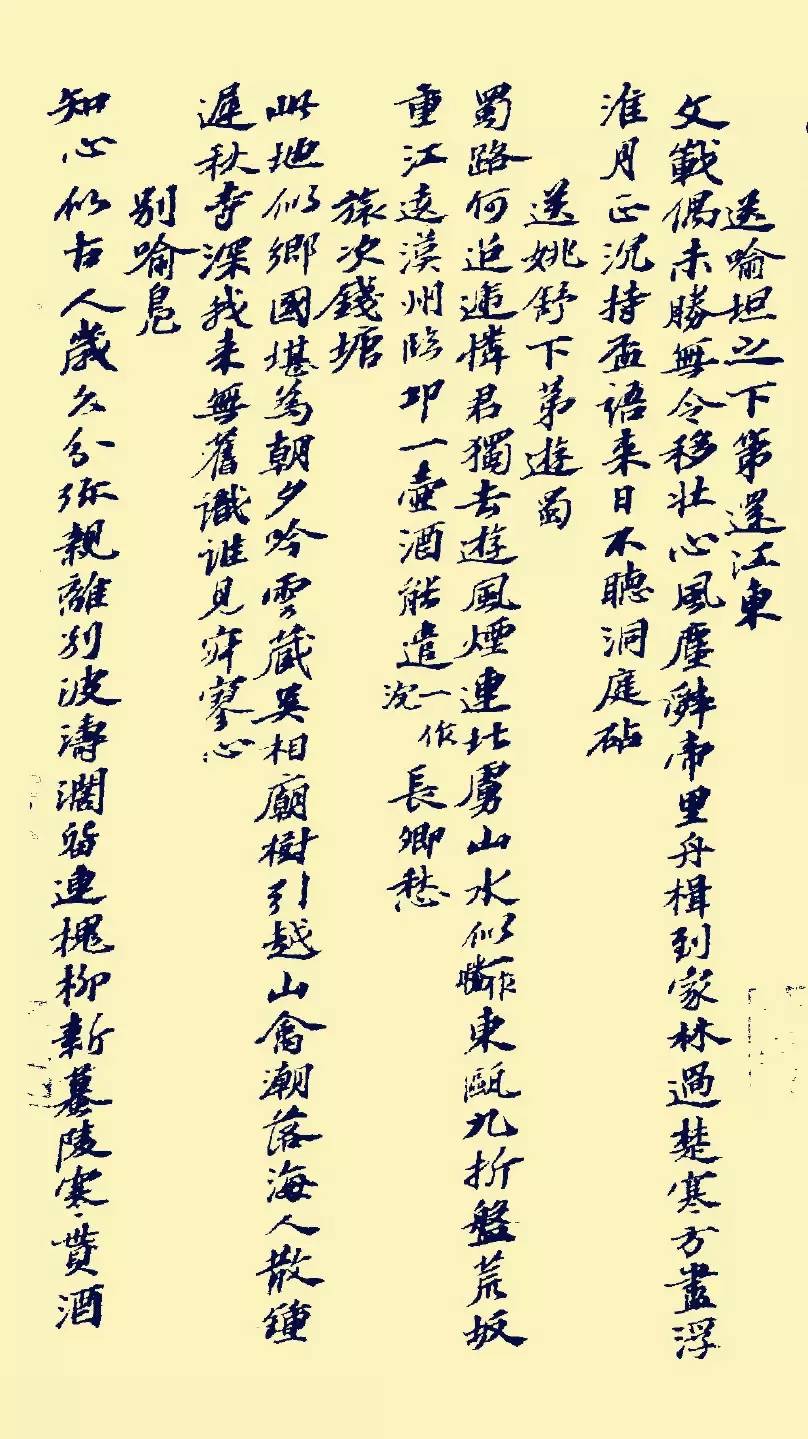 送喻坦之下第還江東
文戰偶未勝無令移壯心風塵辭帝里舟楫到家林過楚寒方盡浮
淮月正沉持盃語來日不聽洞庭砧
送姚舒下第遊蜀
蜀路何迢遞憐君獨去遊風煙連北虜山水似一作勝東甌九折盤荒坂
重江遶漢州臨邛一壺酒能遣一作沉長卿愁
旅次錢塘
此地似鄉國堪為朝夕吟雲藏吳相廟樹引越山禽潮落海人散鍾
遲秋寺深我來無舊識誰見寂寥心
別喻鳧
知心似古人歲久分弥親離別波濤濶留連槐柳新蟇陵寒貰酒